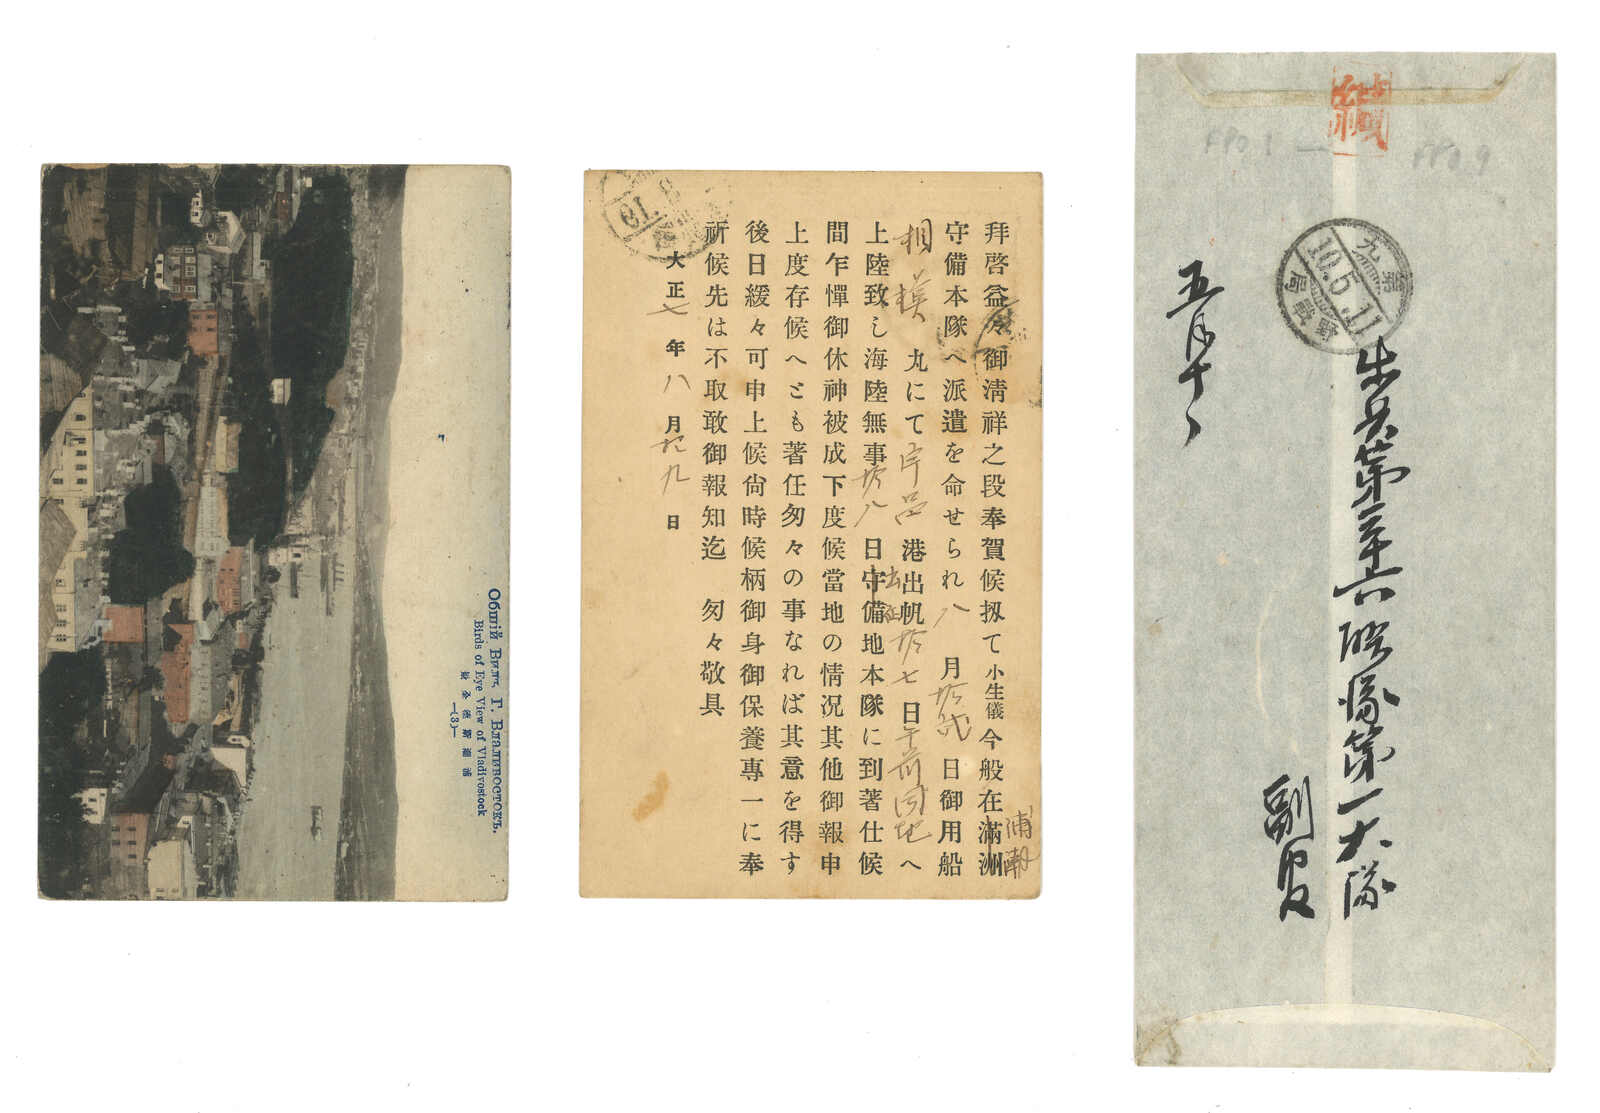 Общій Видъ, Г. Владивостокъ.
Birds of Eye View of Vladivostock
浦潮斯德全景
—(3)—
拜啓益々御淸祥之段奉賀候扨て小生儀今般在滿洲
浦潮
守備本隊へ派遣を命せられ八月拾弐日御用船
相模丸にて宇品港出帆拾七日午前同地へ
上陸致し海陸無事拾八日守備地本隊に到著仕候
間乍憚御休神被成下度候當地の情況其他御報申
上度存候へども著任匆々の事なれば其意を得す
後日緩々可申上候尙時候柄御身御保養專一に奉
祈候先は不取敢御報知迄 匆々敬具
大正七年八月拾九日
緘
FPO 1
FPO 9
九第
10.5.11
局
五月十一
步兵第三十六聯隊第一大隊
副官